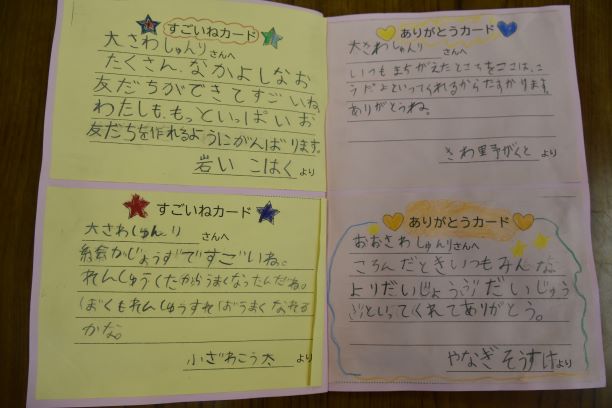 すごいねカード
大さわしゅんりさんへ
たくさん、なかよしなお
友だちができてすごいね。
わたしも、もっといっぱいお
友だちを作れるようにがんばります。
岩い こはくより
すごいねカード
大さわしゅんりさんへ
絵がじょうずですごいね。
れんしゅうしたからうまくなったんだね。
ぼくもれんしゅうすればうまくなれる
かな。
小ざわこう太より
ありがとうカード
大さわしゅんりさんへ
いつもまちがえたところをここは、こ
うだよといってくれるからたすかります。
ありがとうね。
さわ里予がくとより
ありがとうカード
おおさわしゅんりさんへ
ころんだときいつもみんな
よりだいじょうぶだいじょう
ぶといってくれてありがとう。
やなぎそうすけより